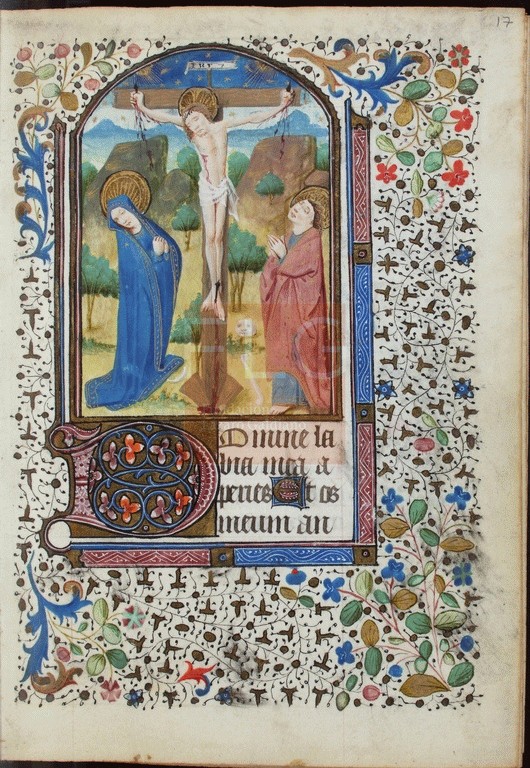 17
DOmine la
bia mea a
peries Et os
meum an